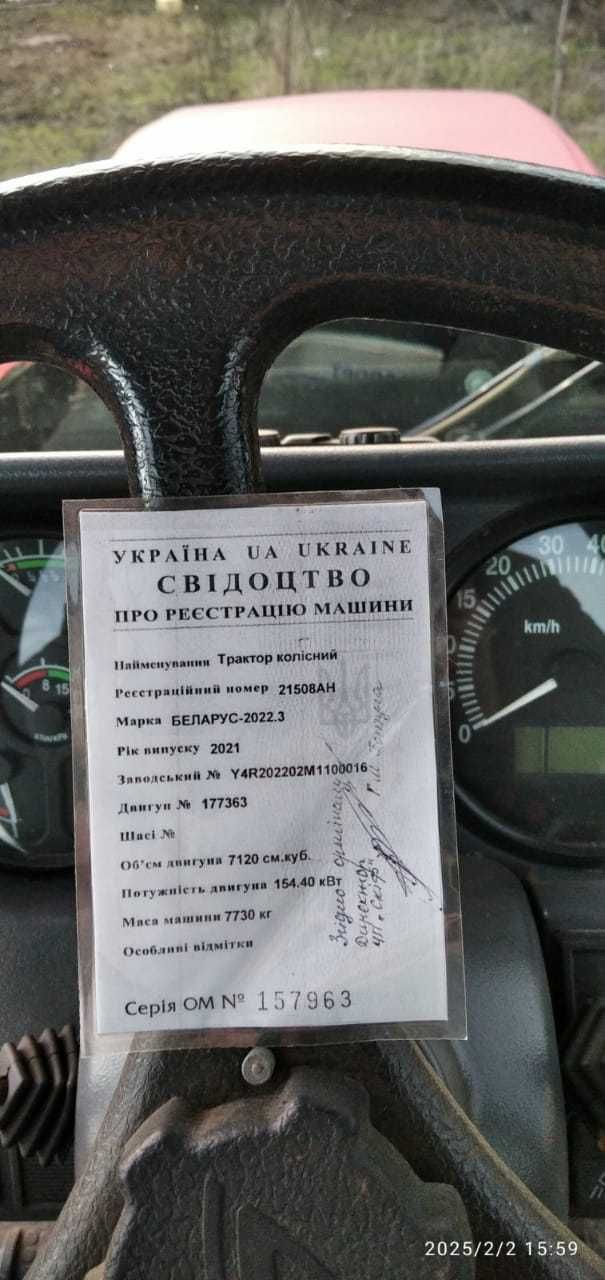 УКРАЇНА UA UKRAINE
СВІДОЦТВО
ПРО РЕЄСТРАЦІЮ МАШИНИ
Найменування Трактор колісний
Реєстраційний номер 21508АН
Марка БЕЛАРУС-2022.3
Рік випуску 2021
Заводський № Y4R202202M1100016
Двигун № 177363
Шасі №
Об'єм двигуна 7120 см.куб.
Потужність двигуна 154.40 кВт
Маса машини 7730 кг
Особливі відмітки
Серія ОМ № 157963
Згідно оригіналу
Директор
ЧП "Скіф"
20 30 40
15
km/h
5
0
0 8 15
2025/2/2 15:59